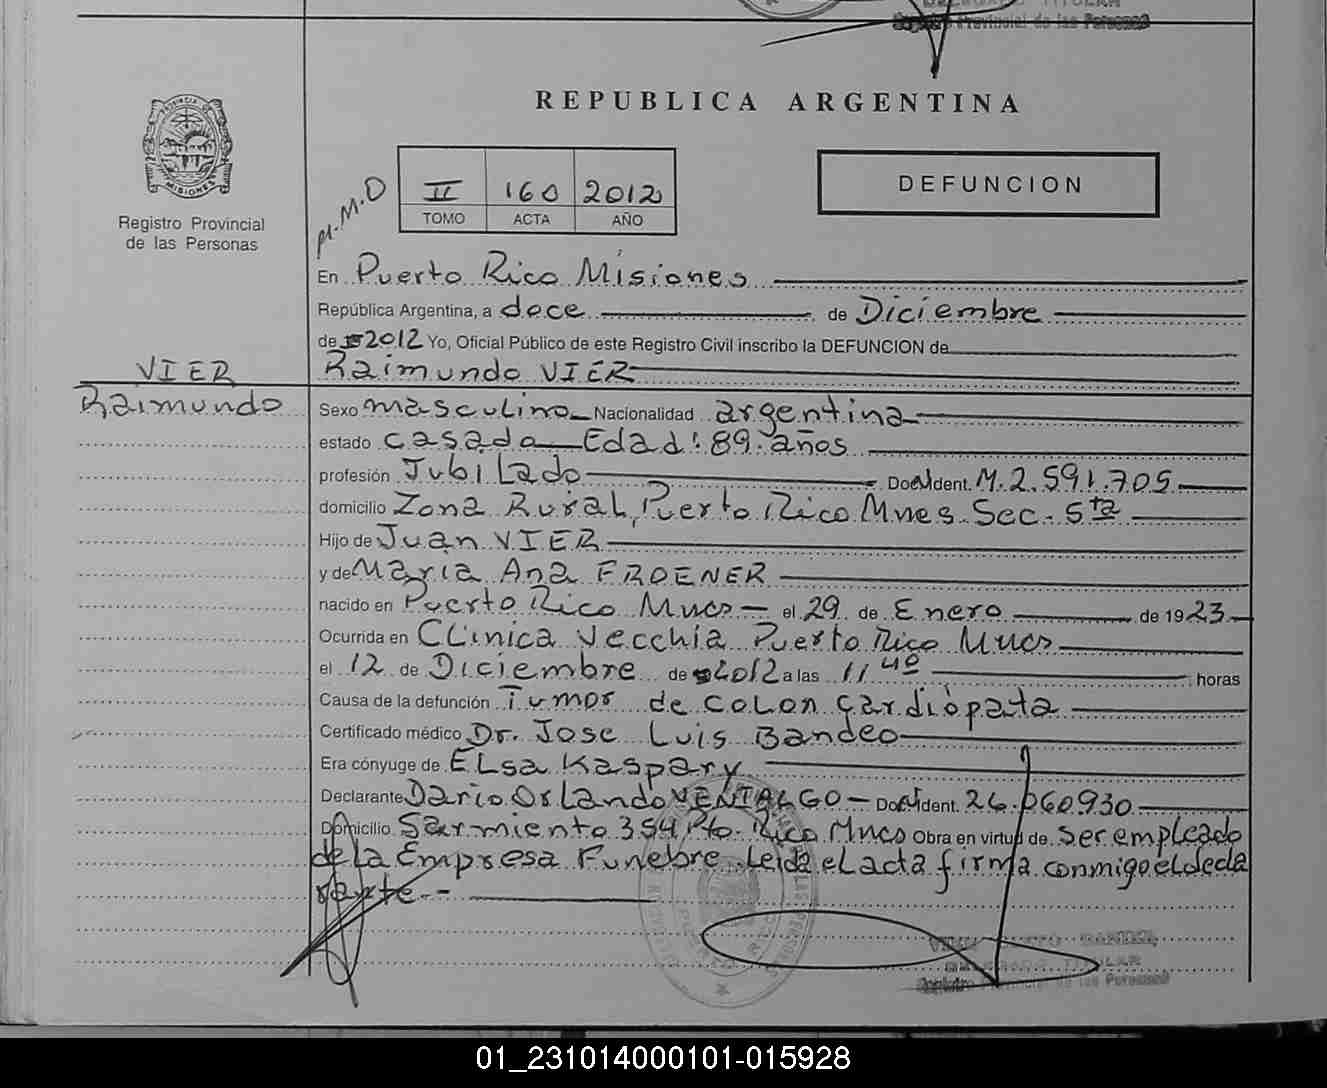 Registro Provincial de las Personas
REPUBLICA ARGENTINA
PROVINCIA DE
MISIONES
Registro Provincial
de las Personas
M.M.D
II 160 2012
TOMO ACTA AÑO
DEFUNCION
En Puerto Rico Misiones
República Argentina, a doce de Diciembre
de 2012 Yo, Oficial Público de este Registro Civil inscribo la DEFUNCION de
Raimundo VIER
VIER
Raimundo
Sexo masculino Nacionalidad argentina
estado casado Edad: 89 años
profesión Jubilado Doc. Ident. M. 2.591.705
domicilio Zona Rural, Puerto Rico Mnes Sec. 5ta
Hijo de Juan VIER
y de Maria Ana FROENER
nacido en Puerto Rico Mnes el 29 de Enero de 1923
Ocurrida en Clinica Vecchia Puerto Rico Mnes
el 12 de Diciembre de 2012 a las 11 40 horas
Causa de la defunción Tumor de colon cardiópata
Certificado médico Dr. Jose Luis Bandeo
Era cónyuge de Elsa Kaspary
Declarante Dario Orlando VENIALGO Doc. Ident. 26.060930
Domicilio Sarmiento 354 Pto. Rico Mnes Obra en virtud de ser empleado
de la Empresa Funebre. Leida el acta firma conmigo el decla
rante.-
TITULAR
Registro Provincial de las Personas
01_231014000101-015928